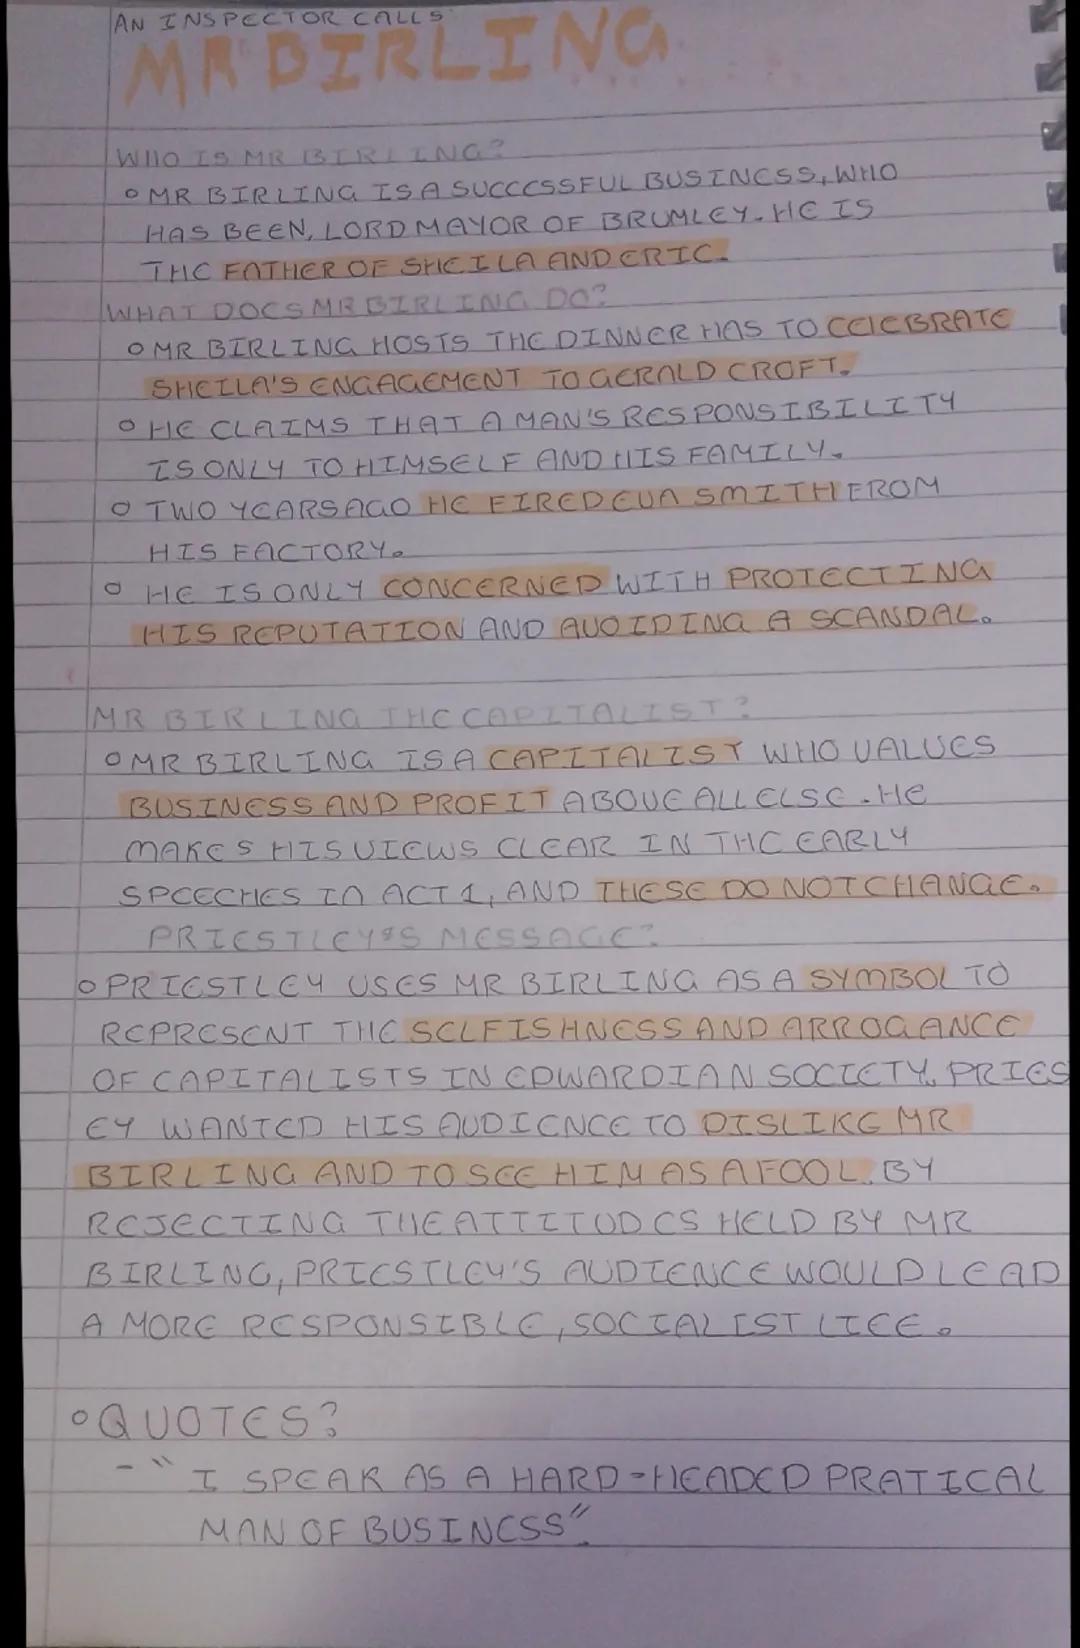 AN INSPECTOR CALLS
MR BIRLING
WHO IS MR BIRLING?
○ MR BIRLING IS A SUCCESSFUL BUSINESS, WHO
HAS BEEN, LORD MAYOR OF BRUMLEY. HE IS
THE FATHER OF SHEILA AND ERIC.
WHAT DOES MR BIRLING DO?
○ MR BIRLING HOSTS THE DINNER HAS TO CELEBRATE
SHEILA'S ENGAGEMENT TO GERALD CROFT.
○ HE CLAIMS THAT A MAN'S RESPONSIBILITY
IS ONLY TO HIMSELF AND HIS FAMILY.
○ TWO YEARS AGO HE FIRED EVA SMITH FROM
HIS FACTORY.
○ HE IS ONLY CONCERNED WITH PROTECTING
HIS REPUTATION AND AVOIDING A SCANDAL.
MR BIRLING THE CAPITALIST?
○ MR BIRLING IS A CAPITALIST WHO VALUES
BUSINESS AND PROFIT ABOVE ALL ELSE. HE
MAKES HIS VIEWS CLEAR IN THE EARLY
SPEECHES IN ACT 1, AND THESE DO NOT CHANGE.
PRIESTLEY'S MESSAGE?
○ PRIESTLEY USES MR BIRLING AS A SYMBOL TO
REPRESENT THE SELFISHNESS AND ARROGANCE
OF CAPITALISTS IN EDWARDIAN SOCIETY. PRIES
EY WANTED HIS AUDIENCE TO DISLIKE MR
BIRLING AND TO SEE HIM AS A FOOL. BY
REJECTING THE ATTITUDES HELD BY MR
BIRLING, PRIESTLEY'S AUDIENCE WOULD LEAD
A MORE RESPONSIBLE, SOCIALIST LICE.
○ QUOTES?
- "I SPEAK AS A HARD-HEADED PRATICAL
MAN OF BUSINESS".